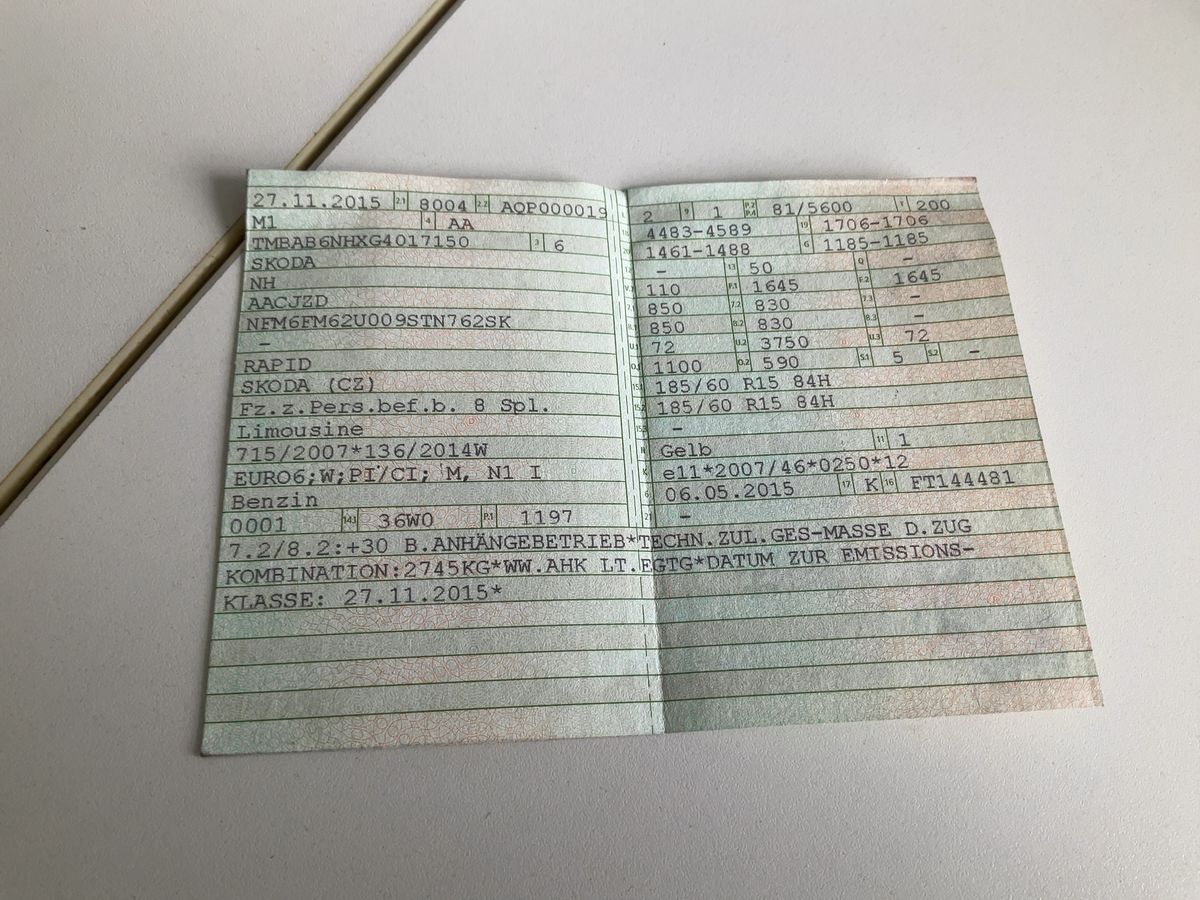 27.11.2015 2.1 8004 2.2 AQP000019
M1 4 AA
TMBAB6NHXG4017150 3 6
SKODA
NH
AACJZD
NFM6FM62U009STN762SK
–
RAPID
SKODA (CZ)
Fz.z.Pers.bef.b. 8 Spl.
Limousine
715/2007*136/2014W
EURO6;W;PI/CI; M, N1 I
Benzin
0001 14.1 36W0 P.1 1197
L 2 9 1 P.2 P.4 81/5600 T 200
18 4483-4589 19 1706-1706
20 1461-1488 G 1185-1185
12 – 13 50 Q –
V.7 110 F.1 1645 F.2 1645
7.1 850 7.2 830 7.3 –
8.1 850 8.2 830 8.3 –
U.1 72 U.2 3750 U.3 72
O.1 1100 O.2 590 S.1 5 S.2 –
15.1 185/60 R15 84H
15.2 185/60 R15 84H
15.3 –
R Gelb 11 1
K e11*2007/46*0250*12
6 06.05.2015 17 K 16 FT144481
21 –
7.2/8.2:+30 B.ANHÄNGEBETRIEB*TECHN.ZUL.GES-MASSE D.ZUG
KOMBINATION:2745KG*WW.AHK LT.EGTG*DATUM ZUR EMISSIONS-
KLASSE: 27.11.2015*